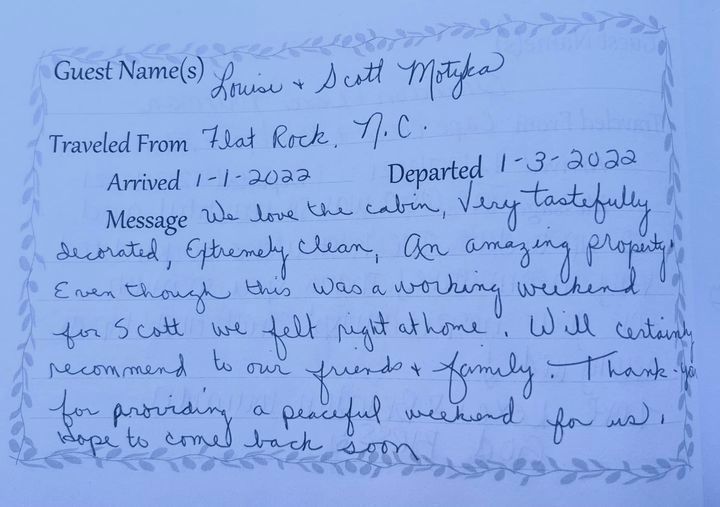 Guest Name(s) Louise + Scott Motyka
Traveled From Flat Rock, N.C.
Arrived 1-1-2022 Departed 1-3-2022
Message We love the cabin, Very tastefully
decorated, Extremely clean, An amazing property.
Even though this was a working weekend
for Scott we felt right at home. Will certainly
recommend to our friends + family. Thank-you
for providing a peaceful weekend for us.
Hope to come back soon